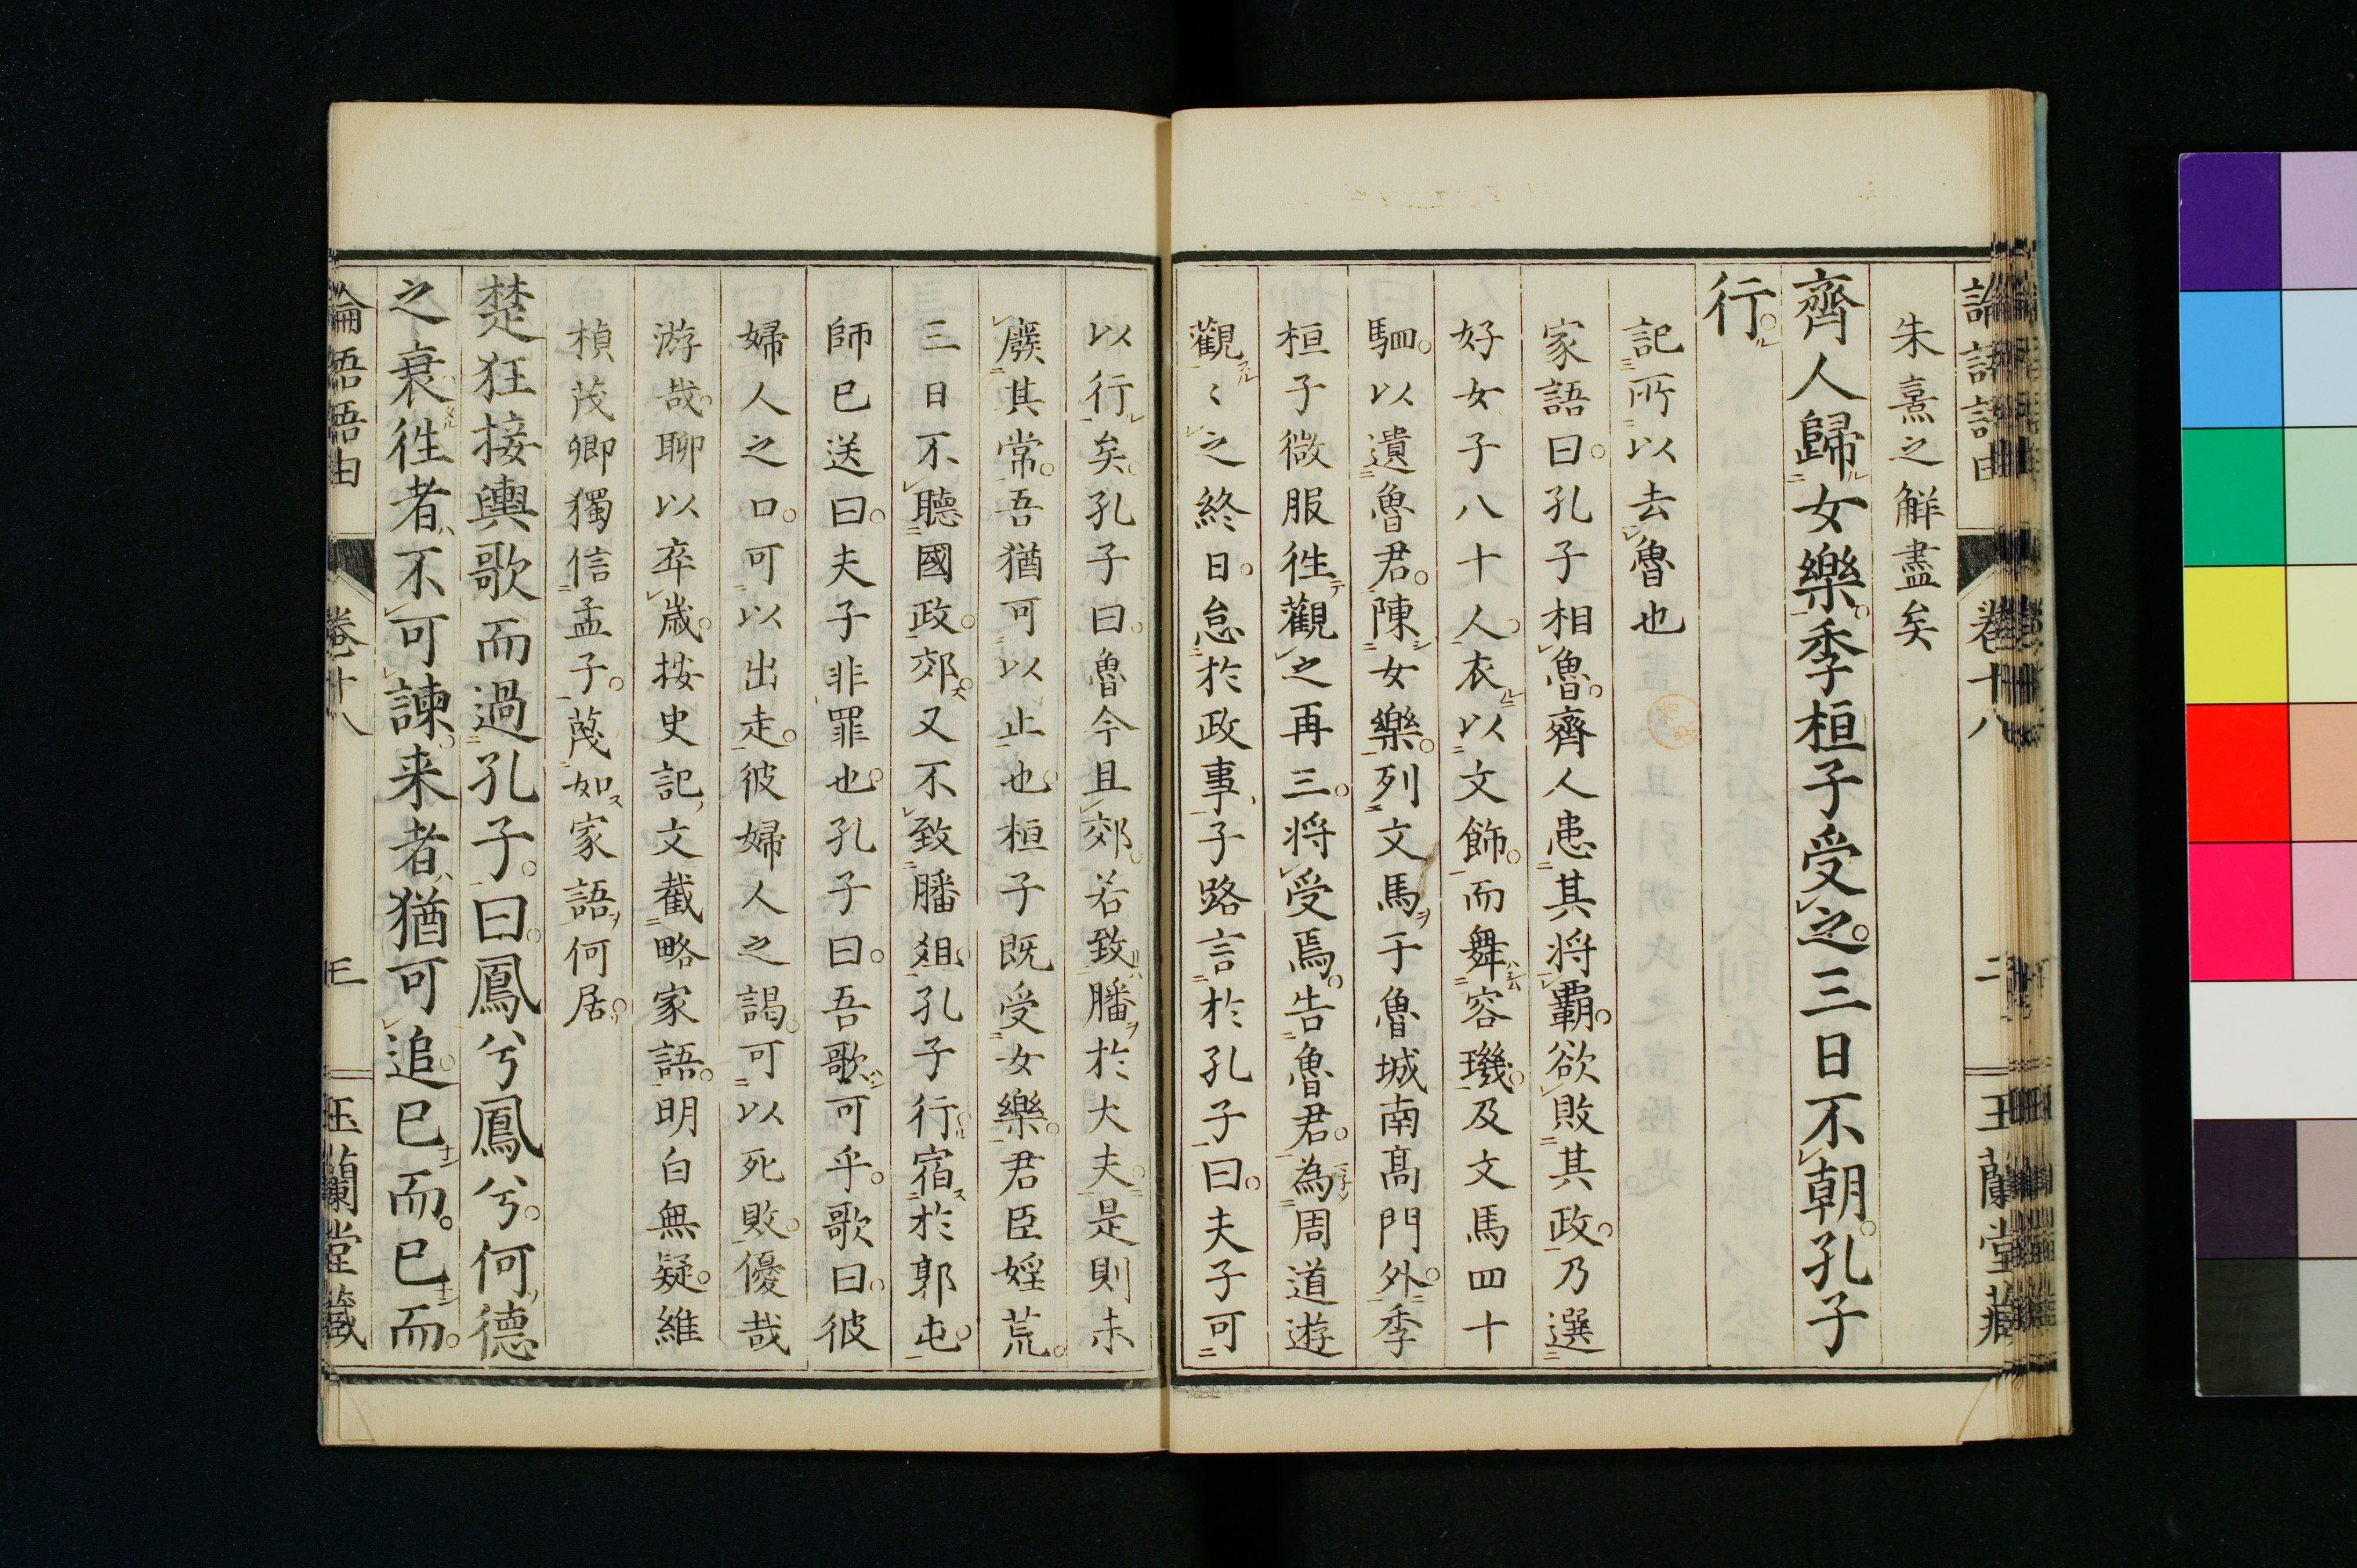 論語語由 卷十八 二 玉蘭堂藏
朱熹之解盡矣
齊人歸女樂季桓子受之三日不朝孔子
行
記所以去魯也
家語曰孔子相魯齊人患其将覇欲敗其政乃選
好女子八十人衣以文飾而舞容璣及文馬四十
駟以遺魯君陳女樂列文馬于魯城南髙門外季
桓子微服徃觀之再三将受焉告魯君為周道遊
觀〻之終日怠於政事子路言於孔子曰夫子可
以行矣孔子曰魯今且郊若致膰於大夫是則未
廢其常吾猶可以止也桓子既受女樂君臣婬荒
三日不聽國政郊又不致膰俎孔子行宿於郭屯
師已送曰夫子非罪也孔子曰吾歌可乎歌曰彼
婦人之口可以出走彼婦人之謁可以死敗優哉
游哉聊以卒歳按史記文截略家語明白無疑維
楨茂卿獨信孟子蔑如家語何居
楚狂接輿歌而過孔子曰鳳兮鳳兮何德
之衰徃者不可諫来者猶可追已而已而
論語語由 卷十八 三 玉蘭堂藏